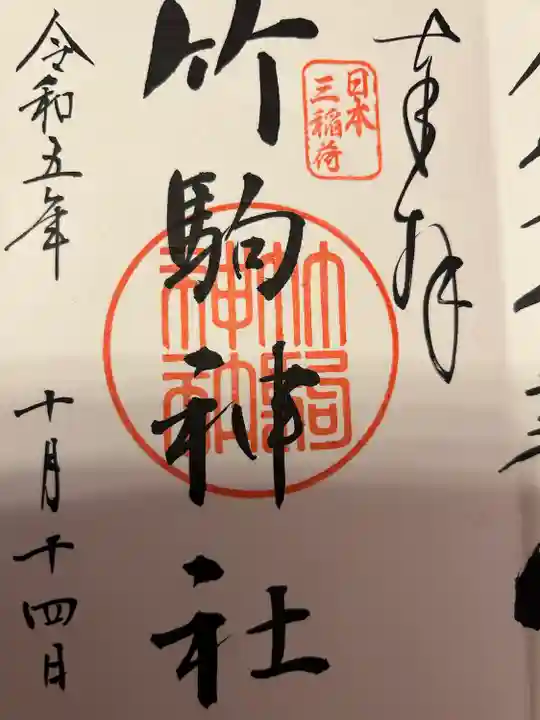 奉拝
日本
三稲荷
竹駒神社
竹駒
神社
令和五年
十月十四日